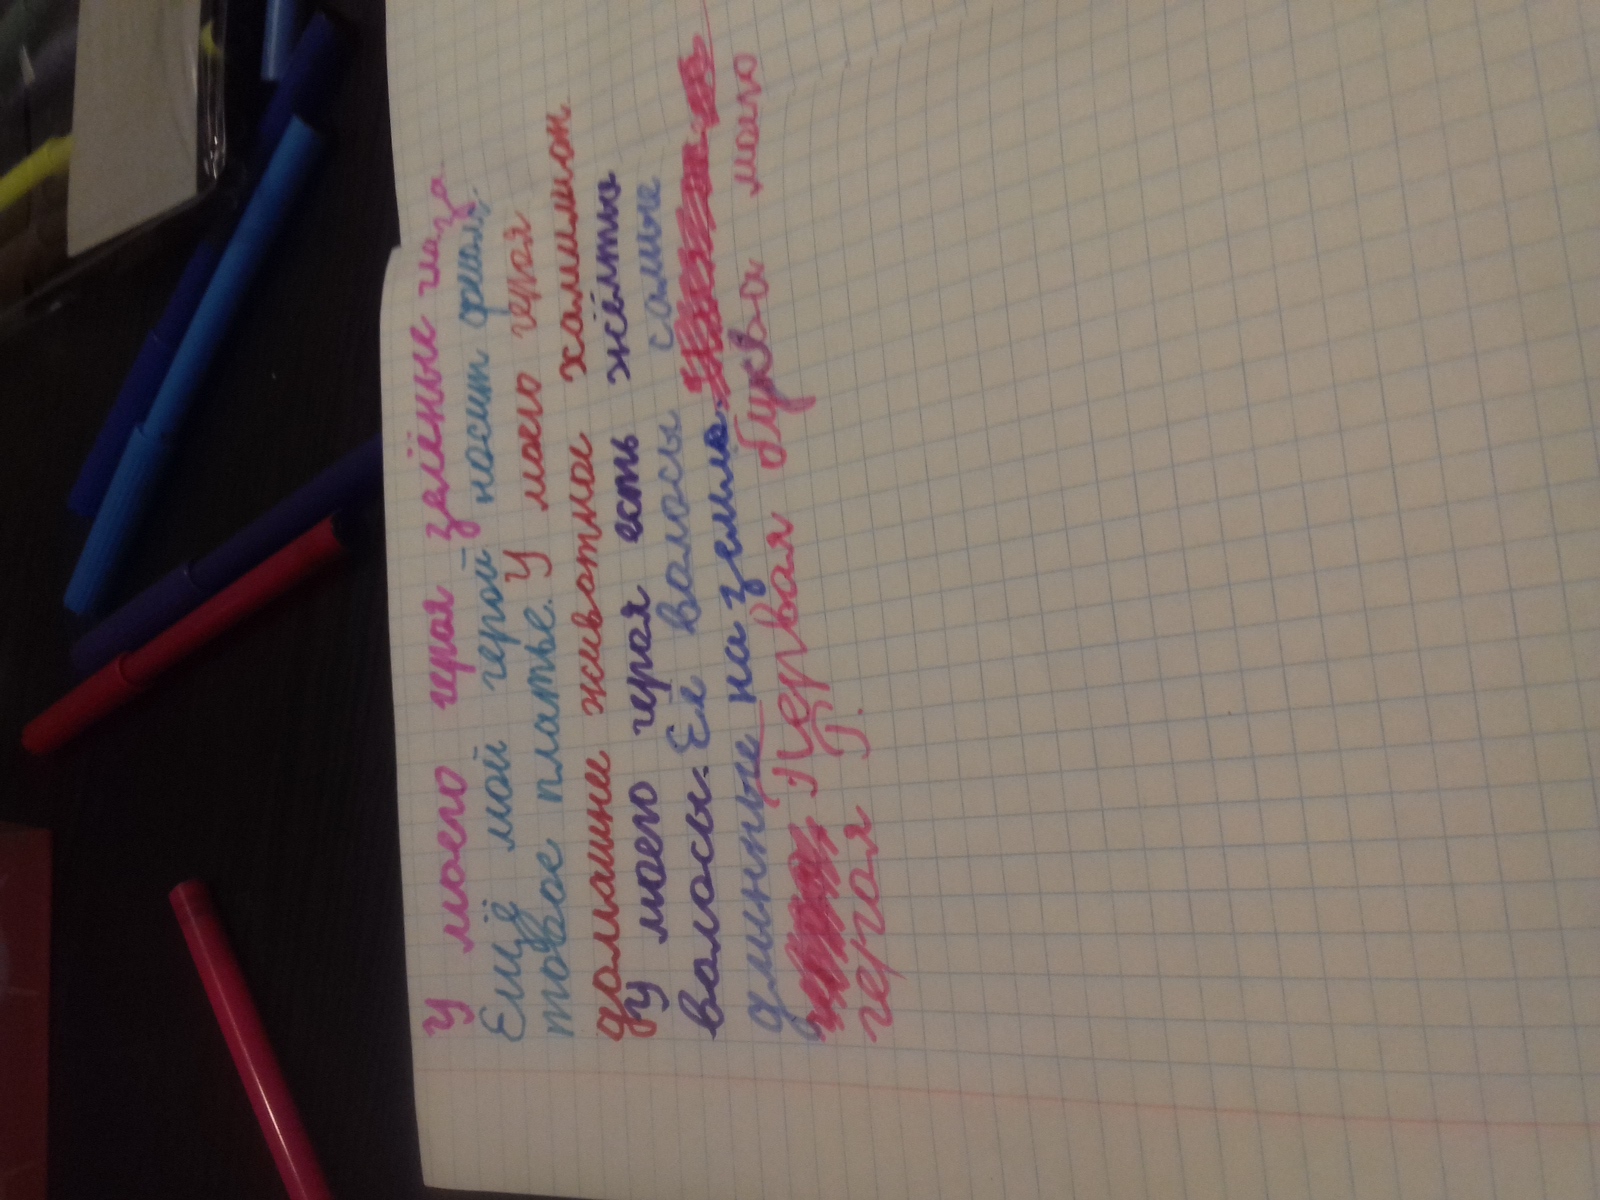 У моего героя зелёные глаза.
Ещё мой герой носит фиол,
товое платье. У моего героя
домашнее животное хамилион
У моего героя есть жёлтые
валосы. Её валосы самые
длинные на земле.
Первая буква моего
героя Г.